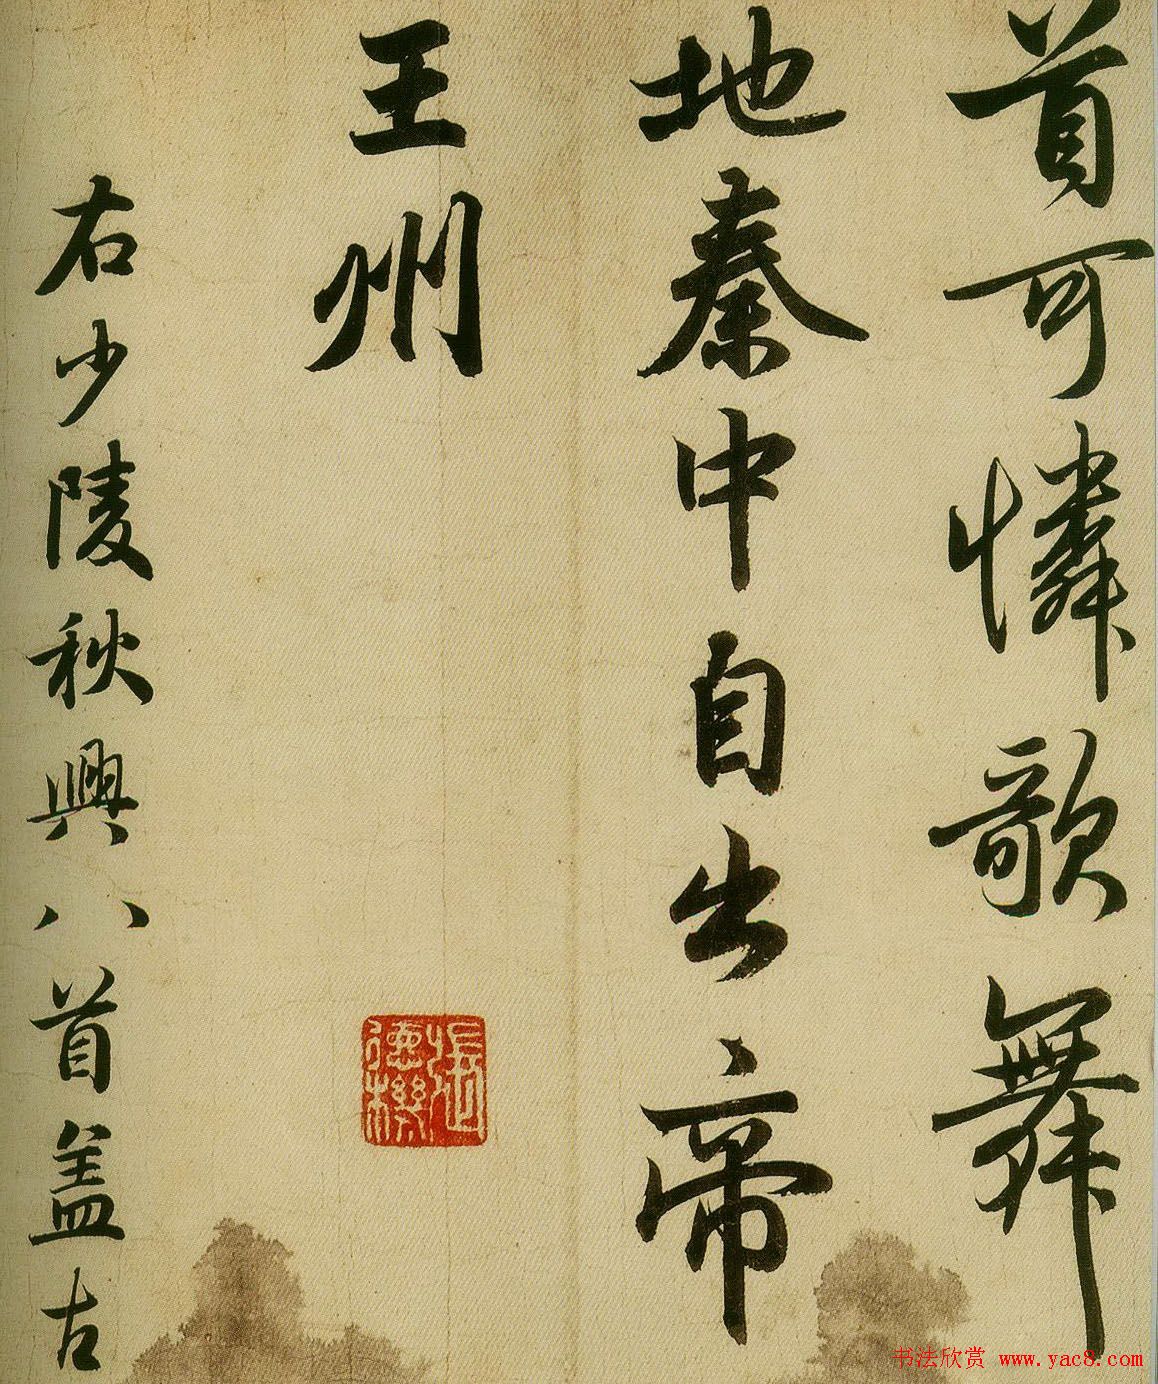 首可憐歌舞
地秦中自出帝
王州
右少陵秋興八首盖古
張氏德機
书法欣赏 www.yac8.com